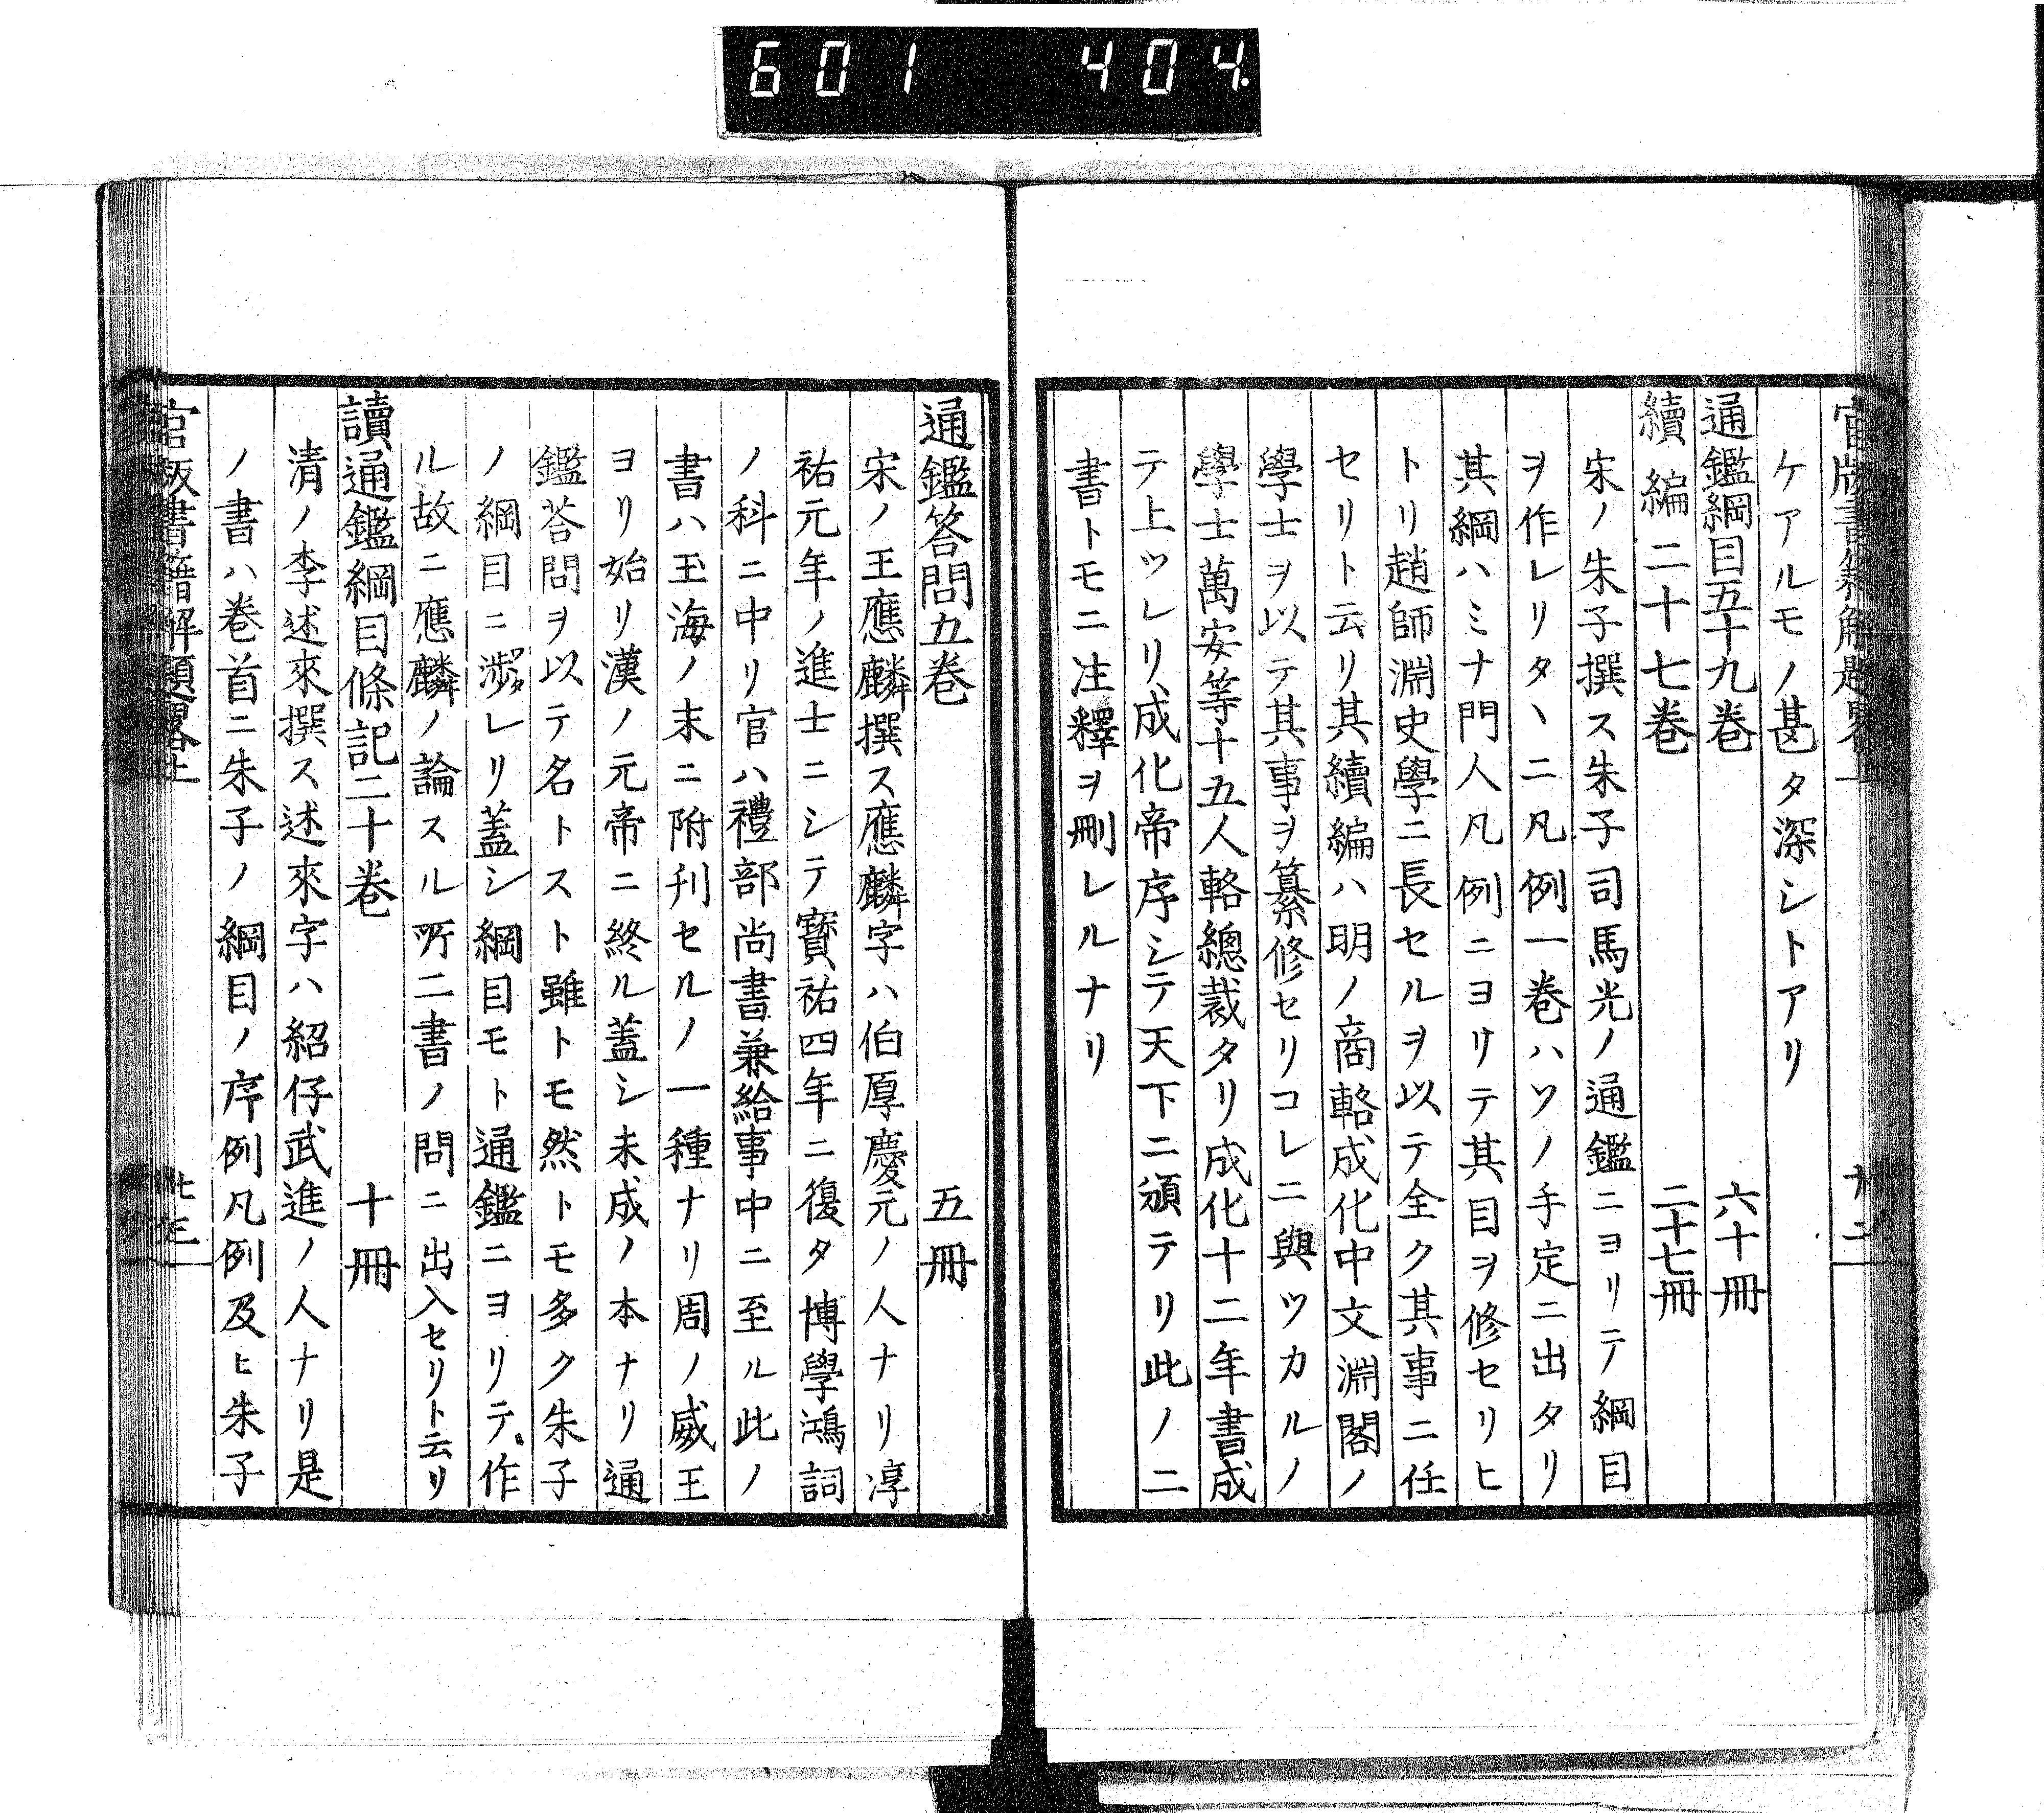 601 404
官版書籍解題畧上 廿二
ケアルモノ甚タ深シトアリ
通鑑綱目五十九巻 六十冊
續編二十七巻 二十七冊
宋ノ朱子撰ス朱子司馬光ノ通鑑ニヨリテ綱目
ヲ作レリタヽニ凡例一巻ハソノ手定ニ出タリ
其綱ハミナ門人凡例ニヨリテ其目ヲ修セリヒ
トリ趙師淵史學ニ長セルヲ以テ全ク其事ニ任
セリト云リ其續編ハ明ノ商輅成化中文淵閣ノ
學士ヲ以テ其事ヲ纂修セリコレニ與ツカルノ
學士萬安等十五人輅總裁タリ成化十二年書成
テ上ツレリ成化帝序シテ天下ニ頒テリ此ノ二
書トモニ注釋ヲ刪レルナリ
通鑑答問五巻 五冊
宋ノ王應麟撰ス應麟字ハ伯厚慶元ノ人ナリ淳
祐元年ノ進士ニシテ寳祐四年ニ復タ博學鴻詞
ノ科ニ中リ官ハ禮部尚書兼給事中ニ至ル此ノ
書ハ玉海ノ末ニ附刋セルノ一種ナリ周ノ威王
ヨリ始リ漢ノ元帝ニ終ル蓋シ未成ノ本ナリ通
鑑荅問ヲ以テ名トスト雖トモ然トモ多ク朱子
ノ綱目ニ渉レリ蓋シ綱目モト通鑑ニヨリテ作
ル故ニ應麟ノ論スル所二書ノ問ニ出入セリト云リ
讀通鑑綱目條記二十巻 十冊
清ノ李述來撰ス述來字ハ紹仔武進ノ人ナリ是
ノ書ハ巻首ニ朱子ノ綱目ノ序例凡例及ヒ朱子
官版書籍解題畧上 廿三